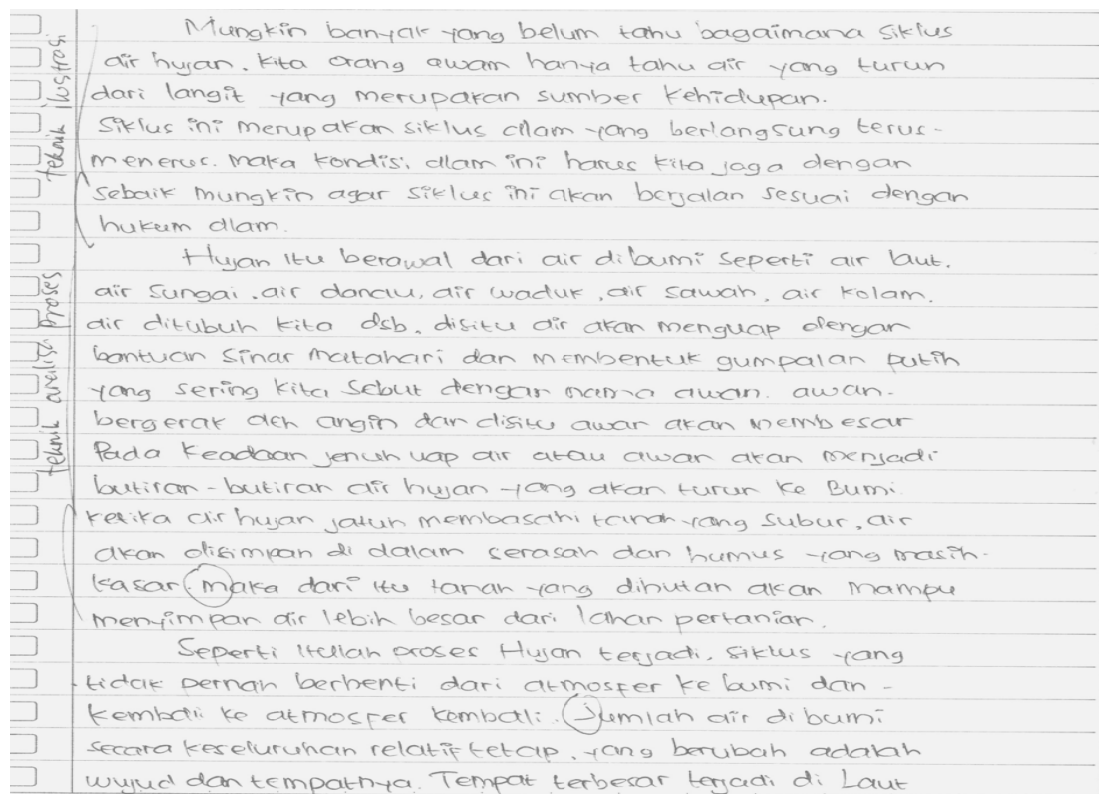 Mungkin banyak yang belum tahu bagaimana siklus
air hujan. Kita orang awam hanya tahu air yang turun
dari langit yang merupakan sumber kehidupan.
Siklus ini merupakan siklus alam yang berlangsung terus-
menerus. Maka kondisi alam ini harus kita jaga dengan
sebaik mungkin agar siklus ini akan berjalan sesuai dengan
hukum alam.
teknik ilustrasi
Hujan itu berawal dari air dibumi seperti air laut.
air sungai, air danau, air waduk, air sawah, air kolam.
air ditubuh kita dsb. disitu air akan menguap dengan
bantuan sinar matahari dan membentuk gumpalan putih
yang sering kita sebut dengan nama awan. awan.
bergerak oleh angin dan disitu awan akan membesar
Pada keadaan jenuh uap air atau awan akan menjadi
butiran-butiran air hujan yang akan turun ke Bumi.
ketika air hujan jatuh membasahi tanah yang subur, air
akan disimpan di dalam serasah dan humus yang masih-
kasar. maka dari itu tanah yang dihutan akan mampu
menyimpan air lebih besar dari lahan pertanian.
teknik analisa proses
Seperti itulah proses Hujan terjadi. siklus yang
tidak pernah berhenti dari atmosfer ke bumi dan -
kembali ke atmosfer kembali. Jumlah air di bumi
secara keseluruhan relatif tetap, yang berubah adalah
wujud dan tempatnya. Tempat terbesar terjadi di Laut